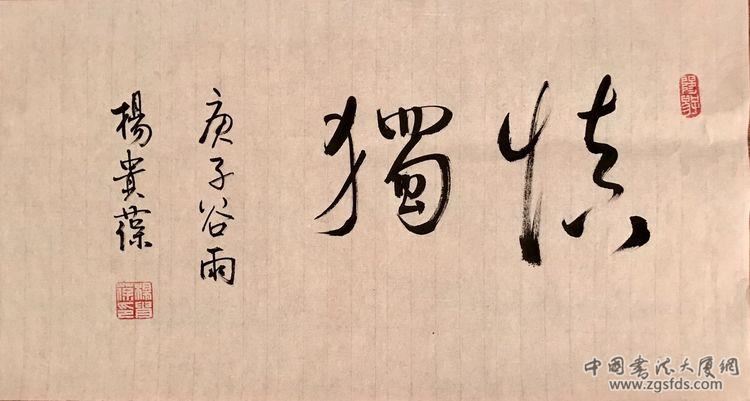 慎獨
庚子谷雨
楊貴葆
中國書法大厦網
www.zgsfds.com